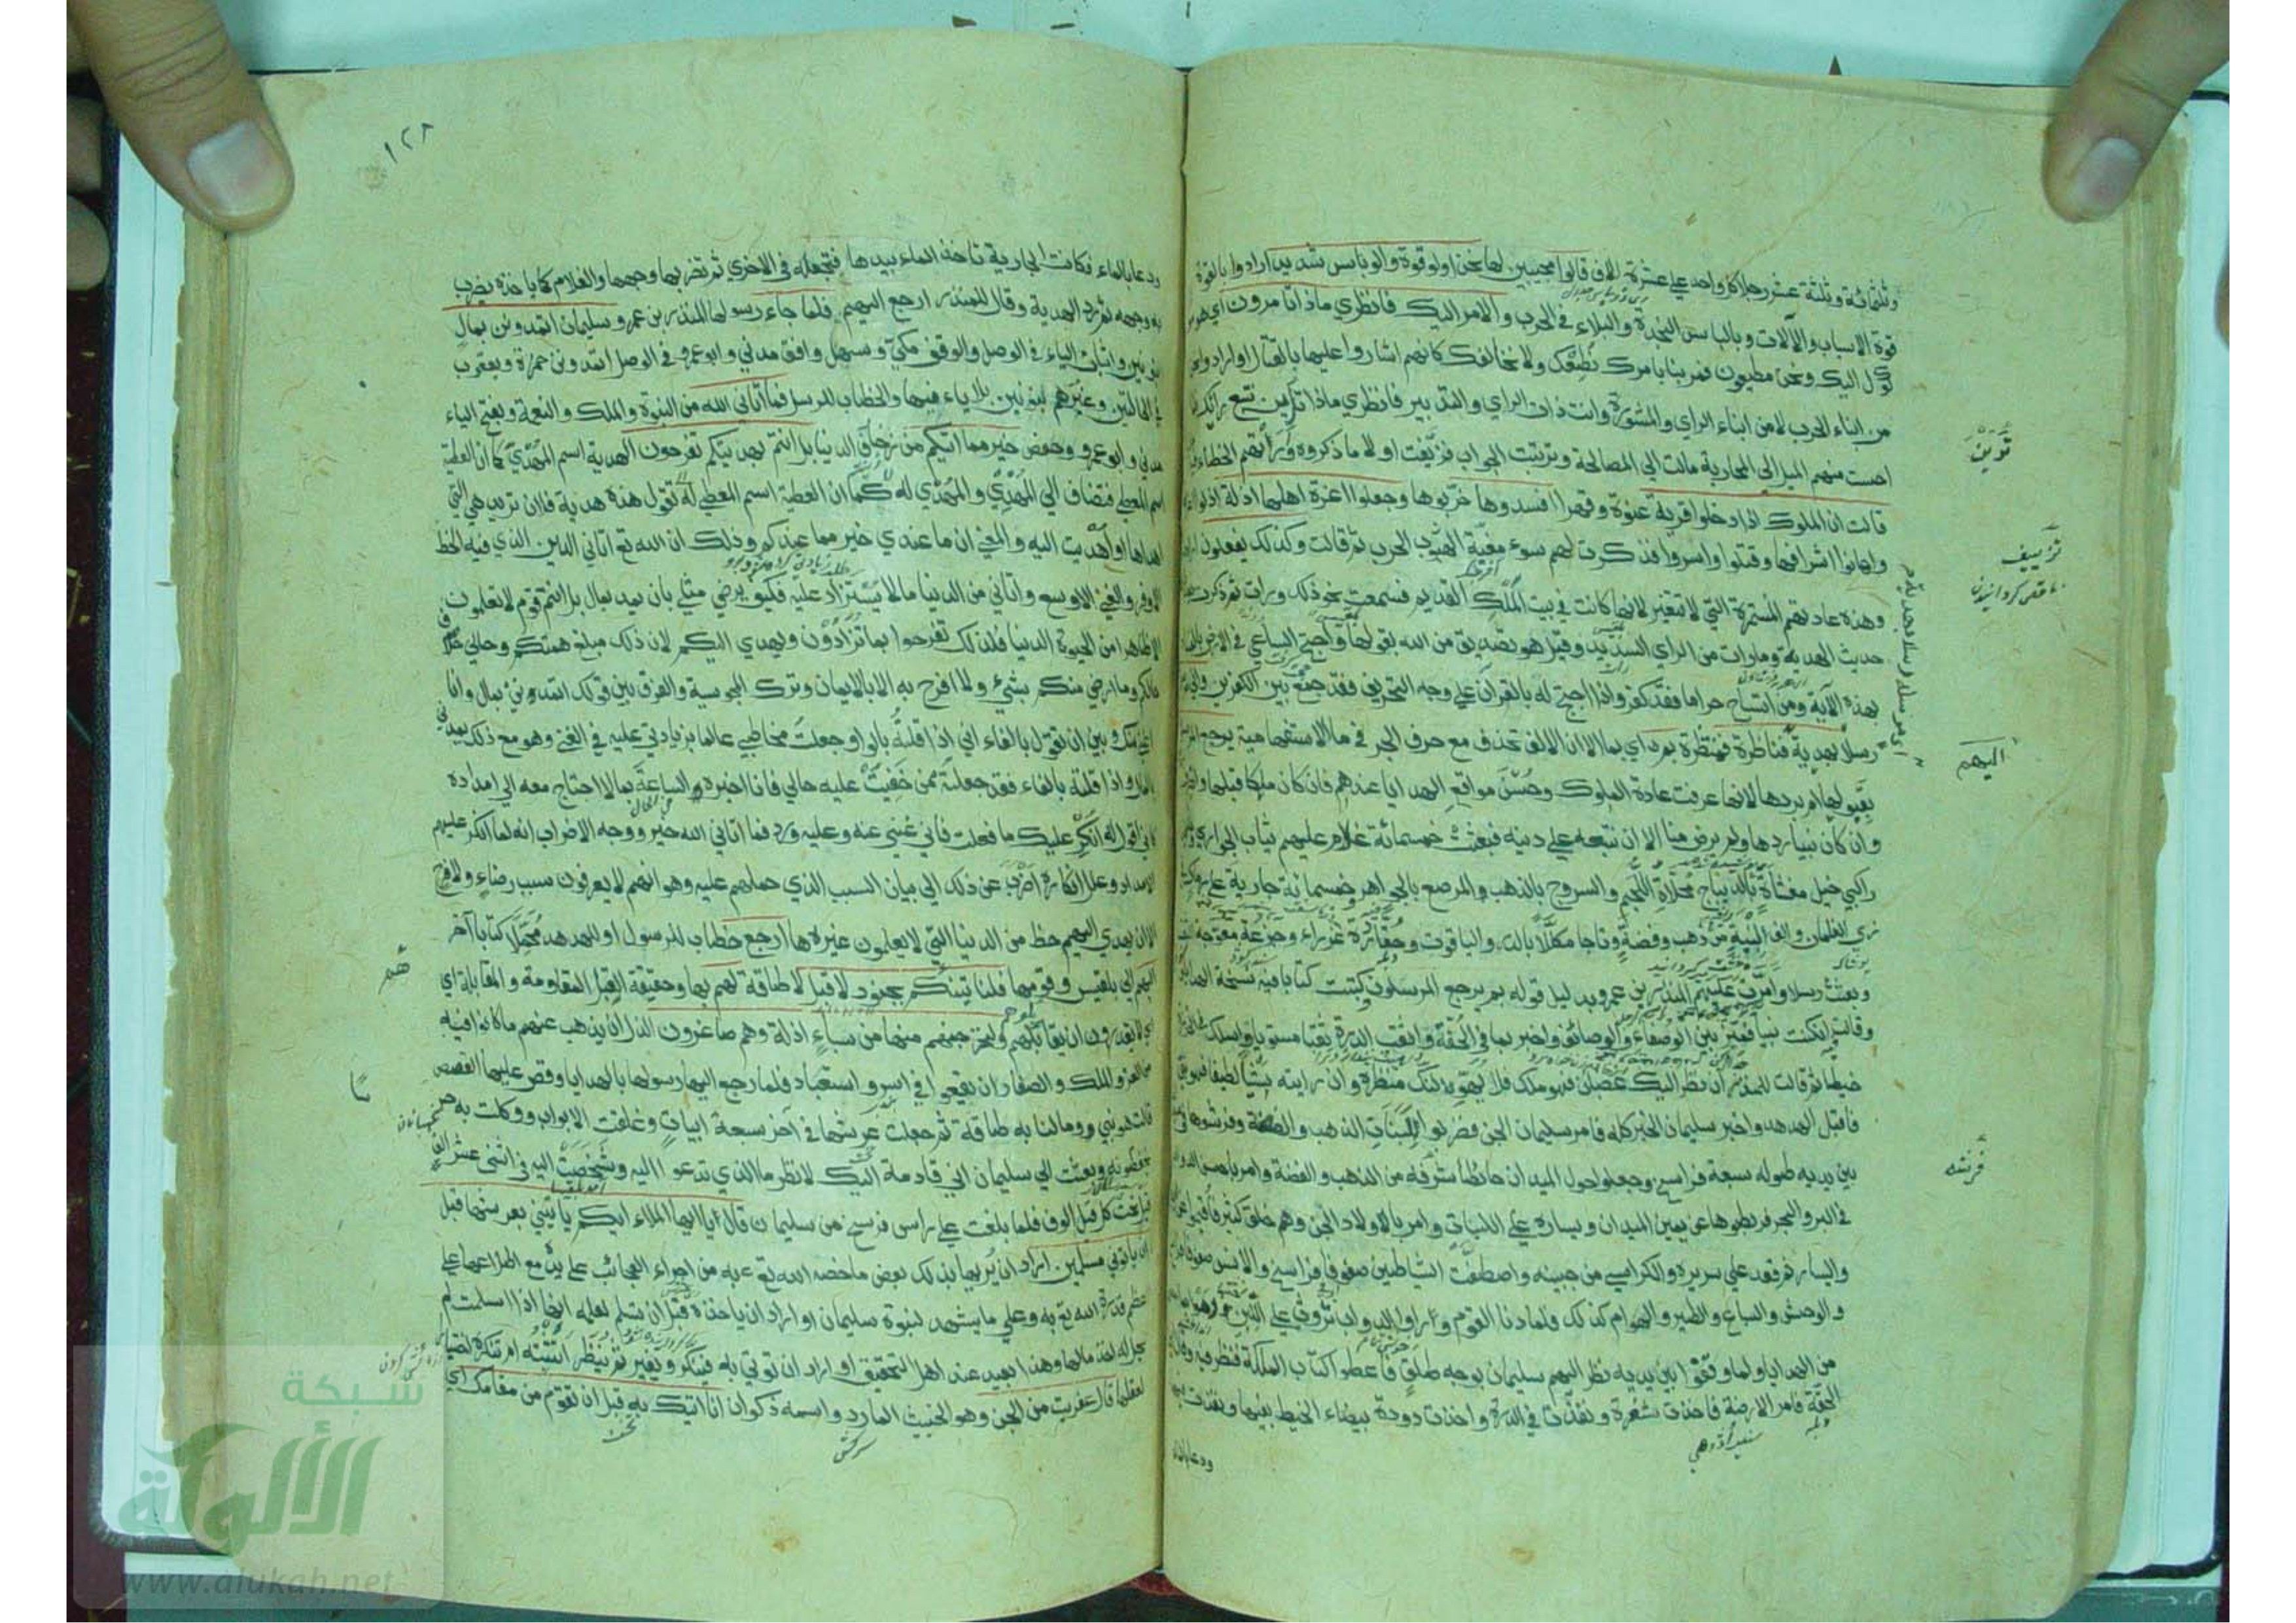 وثلثمائة وثلثة عشر رجلا كل واحد علي عشرة الاف قالوا مجيبين لها نحن اولو قوة والو باس شديد ارادوا بالقوة
قوة الاسباب والآلات وبالباس النجدة والبلاء في الحرب والامر اليك فانظري ماذا تامرون اي هو
موكول اليك ونحن مطيعون فمرينا بامرك نطعك ولا نخالفك كانهم اشاروا عليها بالقتال او ارادوا نحن
من ابناء الحرب لا من ابناء الراي والمشورة وانت ذات الراي والتدبير فانظري ماذا ترين نتبع رايك فلما
احست منهم الميل الي المحاربة مالت الي المصالحة ورتبت الجواب فزيفت اولا ما ذكروه وارأتهم الخطاء فيه
قالت ان الملوك اذا دخلوا قرية عنوة وقهرا افسدوها خربوها وجعلوا اعزة اهلها اذلة اذلوا اعزتها
واهانوا اشرافها وقتلوا واسروا فذكرت لهم سوء مغبة الحرب ثم قالت وكذلك يفعلون
وهذه عادتهم المستمرة التي لا تتغير لانها كانت في بيت الملك القديم فسمعت نحو ذلك ورات ثم ذكرت بعد
حديث الهدية وما رات من الراي السديد وقيل هو تصديق من الله بقولها واحتج الساعي في الارض بالفساد
بهذه الآية ومن استباح حراما فقد كفر واذا احتج له بالقرآن علي وجه التحريف فقد جمع بين الكفرين واني مرسلة اليهم
رسلا بهدية فناظرة فمنتظرة بم اي بما لان الالف تحذف مع حرف الجر في ما الاستفهامية يرجع المرسلون
بقبولها ام بردها لانها عرفت عادة الملوك وحسن مواقع الهدايا عندهم فان كان ملكا قبلها وانصرف
وان كان نبيا ردها ولم يرض منا الا ان نتبعه علي دينه فبعثت خمسمائة غلام عليهم ثياب الجواري
راكبي خيل مغشاة بالديباج محلاة اللجم والسروج بالذهب والمرصع بالجواهر وخمسمائة جارية علي رماك في
زي الغلمان والف لبنة من ذهب وفضة وتاجا مكللا بالدر والياقوت وحقا فيه درة عذراء وجزعة معوجة الثقب
وبعثت رسلا وامرت عليهم المنذر بن عمرو بدليل قوله بم يرجع المرسلون وكتبت كتابا فيه نسخة الهدايا
وقالت ان كنت نبيا فميز بين الوصفاء والوصائف واخبر بما في الحقة واثقب الدرة ثقبا مستويا واسلك في الخرزة
خيطا ثم قالت للمنذر ان نظر اليك غضبان فهو ملك فلا يهولنك منظره وان رايته بشا لطيفا فهو نبي
فاقبل الهدهد واخبر سليمان الخبر كله فامر سليمان الجن فضربوا لبنات الذهب والفضة وفرشوها في ميدان
بين يديه طوله سبعة فراسخ وجعلوا حول الميدان حائطا شرفه من الذهب والفضة وامر باحسن الدواب
في البر والبحر فربطوها عن يمين الميدان ويساره علي اللبنات وامر باولاد الجن وهم خلق كثير فاقيموا عن اليمين
واليسار ثم قعد علي سريره والكراسي من جنبيه واصطفت الشياطين صفوفا فراسخ والانس صفوفا فراسخ
والوحش والسباع والطير والهوام كذلك فلما دنا القوم وراوا الدواب تروث علي اللبن رموا بما معهم
من الهدايا ولما وقفوا بين يديه نظر اليهم سليمان بوجه طلق فاعطوا كتاب الملكة فنظر فيه وقال اين
الحقة فامر الارضة فاخذت شعرة ونفذت في الدرة واخذت دودة بيضاء الخيط بفيها ونفذت فيها
ودعا بالماء
تزييف
اليهم
اي مرسلة رسلا بهدية
١٢٨
ودعا بالماء فكانت الجارية تاخذ الماء بيدها فتجعله في الاخري ثم تضرب بها وجهها والغلام كما ياخذه يضرب
به وجهه ثم رد الهدية وقال للمنذر ارجع اليهم فلما جاء رسولها المنذر بن عمرو سليمان اتمدونن بمال
بنونين واثبات الياء في الوصل والوقف مكي وسهل وافق مدني وابو عمرو في الوصل اتمدوني حمزة ويعقوب
في الحالين وغيرهم بنونين بلا ياء فيهما والخطاب للرسل فما آتاني الله من النبوة والملك والنعمة وبفتح الياء
مدني وابو عمرو وحفص خير مما اتيكم من زخارف الدنيا بل انتم بهديتكم تفرحون الهدية اسم المهدي كما ان العطية
اسم المعطي فتضاف الي المهدي والمهدي له كما ان العطية اسم المعطي له تقول هذه هدية فلان تريد هي التي
اهداها او اهديت اليه والمعني ان ما عندي خير مما عندكم وذلك ان الله تع اتاني الدين الذي فيه الحظ
الاوفر والغني الاوسع واتاني من الدنيا ما لا يستزاد عليه فكيف يرضي مثلي بان يمد بمال بل انتم قوم لا تعلمون
الا ظاهرا من الحيوة الدنيا فلذلك تفرحوا بما تزادون ويهدي اليكم لان ذلك مبلغ همتكم وحالي خلاف
حالكم وما ارضي منكم بشيء ولا افرح به الا بالايمان وترك المجوسية والفرق بين قولك اتمدونني بمال وانا
اغني منك وبين ان تقول بالفاء اني اذا قلته بالواو جعلت مخاطبي عالما بزيادتي عليه في الغني وهو مع ذلك يمدني
بالمال واذا قلته بالفاء فقد جعلته ممن خفيت عليه حالي فانا اخبره الساعة بما لا احتاج معه الي امداده
كاني اقول له انكر عليك ما فعلت فاني غني عنه وعليه ورد فما اتاني الله خير ووجه الاضراب انه لما انكر عليهم
الامداد وعلل انكاره اضرب عن ذلك الي بيان السبب الذي حملهم عليه وهو انهم لا يعرفون سبب رضاء ولا فرح
الا ان يهدي اليهم حظ من الدنيا التي لا يعلمون غيرها ارجع خطاب للرسول او للهدهد محملا كتابا آخر
اليهم الي بلقيس وقومها فلناتينكم بجنود لا قبل لا طاقة لهم بها وحقيقة القبل المقاومة والمقابلة اي
لا يقدرون ان يقابلوهم ولنخرجنهم منها من سباء اذلة وهم صاغرون الذل ان يذهب عنهم ما كانوا فيه
من العز والملك والصغار ان يقعوا في اسر واستعباد فلما رجع اليها رسولها بالهدايا وقص عليها القصص
قالت هو نبي وما لنا به طاقة ثم جعلت عرشها في آخر سبعة ابيات وغلقت الابواب ووكلت به حرسا
يحفظونه وبعثت الي سليمان اني قادمة اليك لانظر ما الذي تدعو اليه وشخصت اليه في اثني عشر الف
قيل تحت كل قيل الوف فلما بلغت علي راس فرسخ من سليمان قال يا ايها الملاء ايكم ياتيني بعرشها قبل
ان ياتوني مسلمين اراد ان يريها بذلك بعض ما خصه الله تع به من اجراء العجائب علي يده مع اطلاعها علي
عظم قدرة الله تع به وعلي ما يشهد لنبوة سليمان او اراد ان ياخذه قبل ان تسلم لعلمه انها اذا اسلمت لم
يحل له اخذ مالها وهذا بعيد عند اهل التحقيق او اراد ان توتي به فينكر ويغير ثم ينظر اتثبته ام تنكره اختبارا
لعقلها قال عفريت من الجن وهو الخبيث المارد واسمه ذكوان انا اتيك به قبل ان تقوم من مقامك اي
شبكة
الألوكة
www.alukah.net